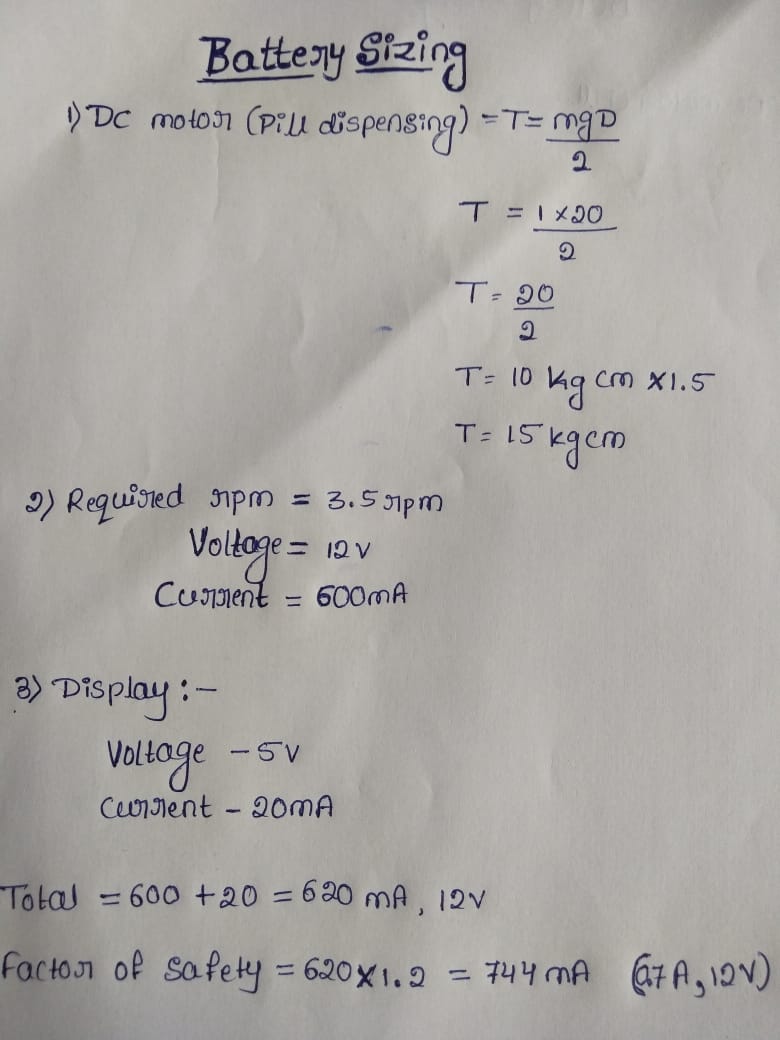 Battery Sizing
1) DC motor (Pill dispensing) = T = mgD/2
T = 1 × 20/2
T = 20/2
T = 10 kg cm × 1.5
T = 15 kgcm
2) Required rpm = 3.5 rpm
Voltage = 12 V
Current = 600mA
3) Display :-
Voltage - 5V
Current - 20mA
Total = 600 + 20 = 620 mA, 12V
Factor of safety = 620 × 1.2 = 744 mA (0.7 A, 12V)